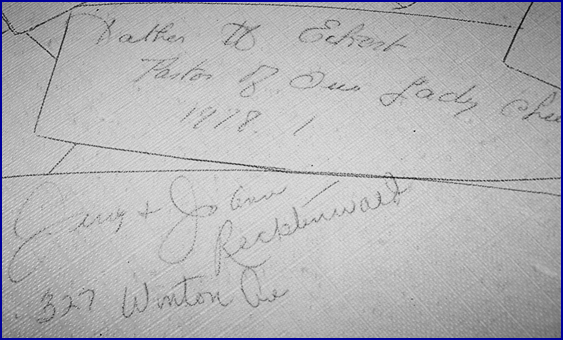 Father W Eckert
Pastor of Our Lady
1978
Jerry + JoAnn
Recktenwald
327 Winton Ave